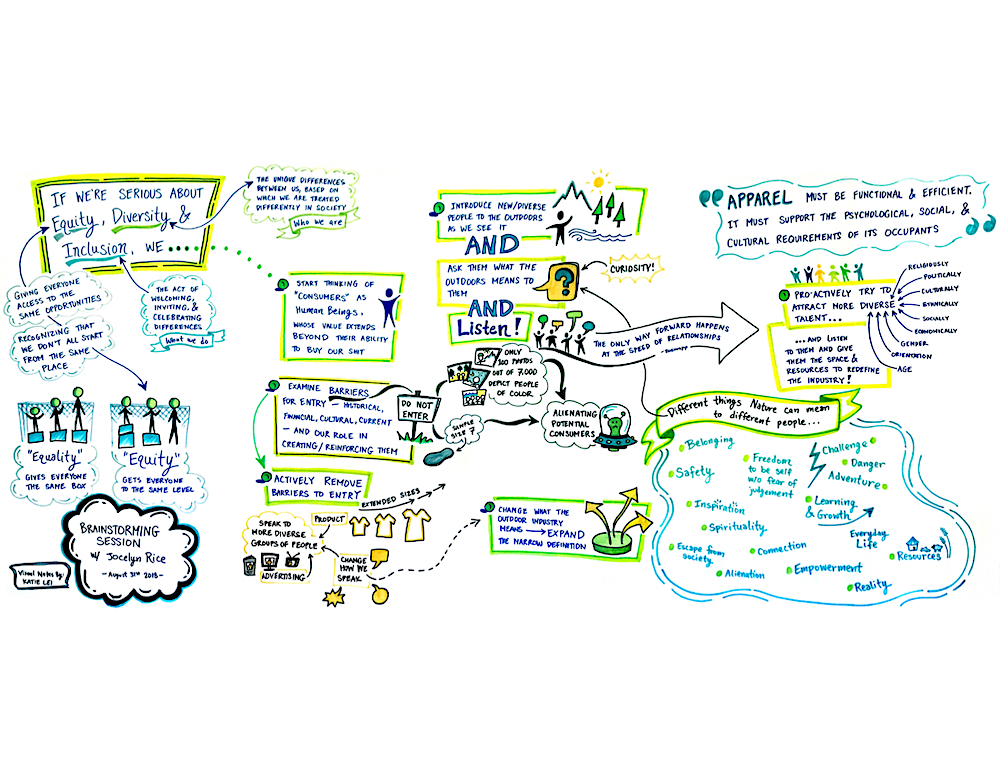 IF WE'RE SERIOUS ABOUT
Equity, Diversity, &
Inclusion, WE
THE UNIQUE DIFFERENCES
BETWEEN US, BASED ON
WHICH WE ARE TREATED
DIFFERENTLY IN SOCIETY
Who we are
GIVING EVERYONE
ACCESS TO THE
SAME OPPORTUNITIES
RECOGNIZING THAT
WE DON'T ALL START
FROM THE SAME
PLACE
THE ACT OF
WELCOMING,
INVITING, &
CELEBRATING
DIFFERENCES
What we do
"Equality"
GIVES EVERYONE
THE SAME BOX
"Equity"
GETS EVERYONE
TO THE SAME LEVEL
BRAINSTORMING
SESSION
W/ Jocelyn Rice
—August 31st 2018—
Visual Notes By:
KATIE LEI
START THINKING OF
"CONSUMERS" AS
Human Beings,
WHOSE VALUE EXTENDS
BEYOND THEIR ABILITY
TO BUY OUR SHIT
EXAMINE BARRIERS
FOR ENTRY — HISTORICAL,
FINANCIAL, CULTURAL, CURRENT
— AND OUR ROLE IN
CREATING / REINFORCING THEM
DO NOT
ENTER
ONLY
300 PHOTOS
OUT OF 7,000
DEPICT PEOPLE
OF COLOR.
SAMPLE
SIZE 7
ALIENATING
POTENTIAL
CONSUMERS
ACTIVELY REMOVE
BARRIERS TO ENTRY
EXTENDED SIZES
PRODUCT
SPEAK TO
MORE DIVERSE
GROUPS OF PEOPLE
ADVERTISING
CHANGE
HOW WE
SPEAK
INTRODUCE NEW/DIVERSE
PEOPLE TO THE OUTDOORS
AS WE SEE IT
AND
ASK THEM WHAT THE
OUTDOORS MEANS TO
THEM
?
CURIOSITY!
AND
Listen!
THE ONLY WAY FORWARD HAPPENS
AT THE SPEED OF RELATIONSHIPS
CHANGE WHAT THE
OUTDOOR INDUSTRY
MEANS → EXPAND
THE NARROW DEFINITION
"APPAREL MUST BE FUNCTIONAL & EFFICIENT.
IT MUST SUPPORT THE PSYCHOLOGICAL, SOCIAL, &
CULTURAL REQUIREMENTS OF ITS OCCUPANTS"
PRO-ACTIVELY TRY TO
ATTRACT MORE DIVERSE
TALENT...
RELIGIOUSLY
POLITICALLY
CULTURALLY
ETHNICALLY
SOCIALLY
ECONOMICALLY
GENDER
ORIENTATION
AGE
...AND LISTEN
TO THEM AND GIVE
THEM THE SPACE &
RESOURCES TO REDEFINE
THE INDUSTRY!
Different things Nature can mean
to different people...
Belonging
Safety
Freedom
to be self
w/o fear of
judgement
Challenge
Danger
Adventure
Inspiration
Spirituality
Learning
& Growth
Escape from
society
Connection
Everyday
Life
Resources
Alienation
Empowerment
Reality